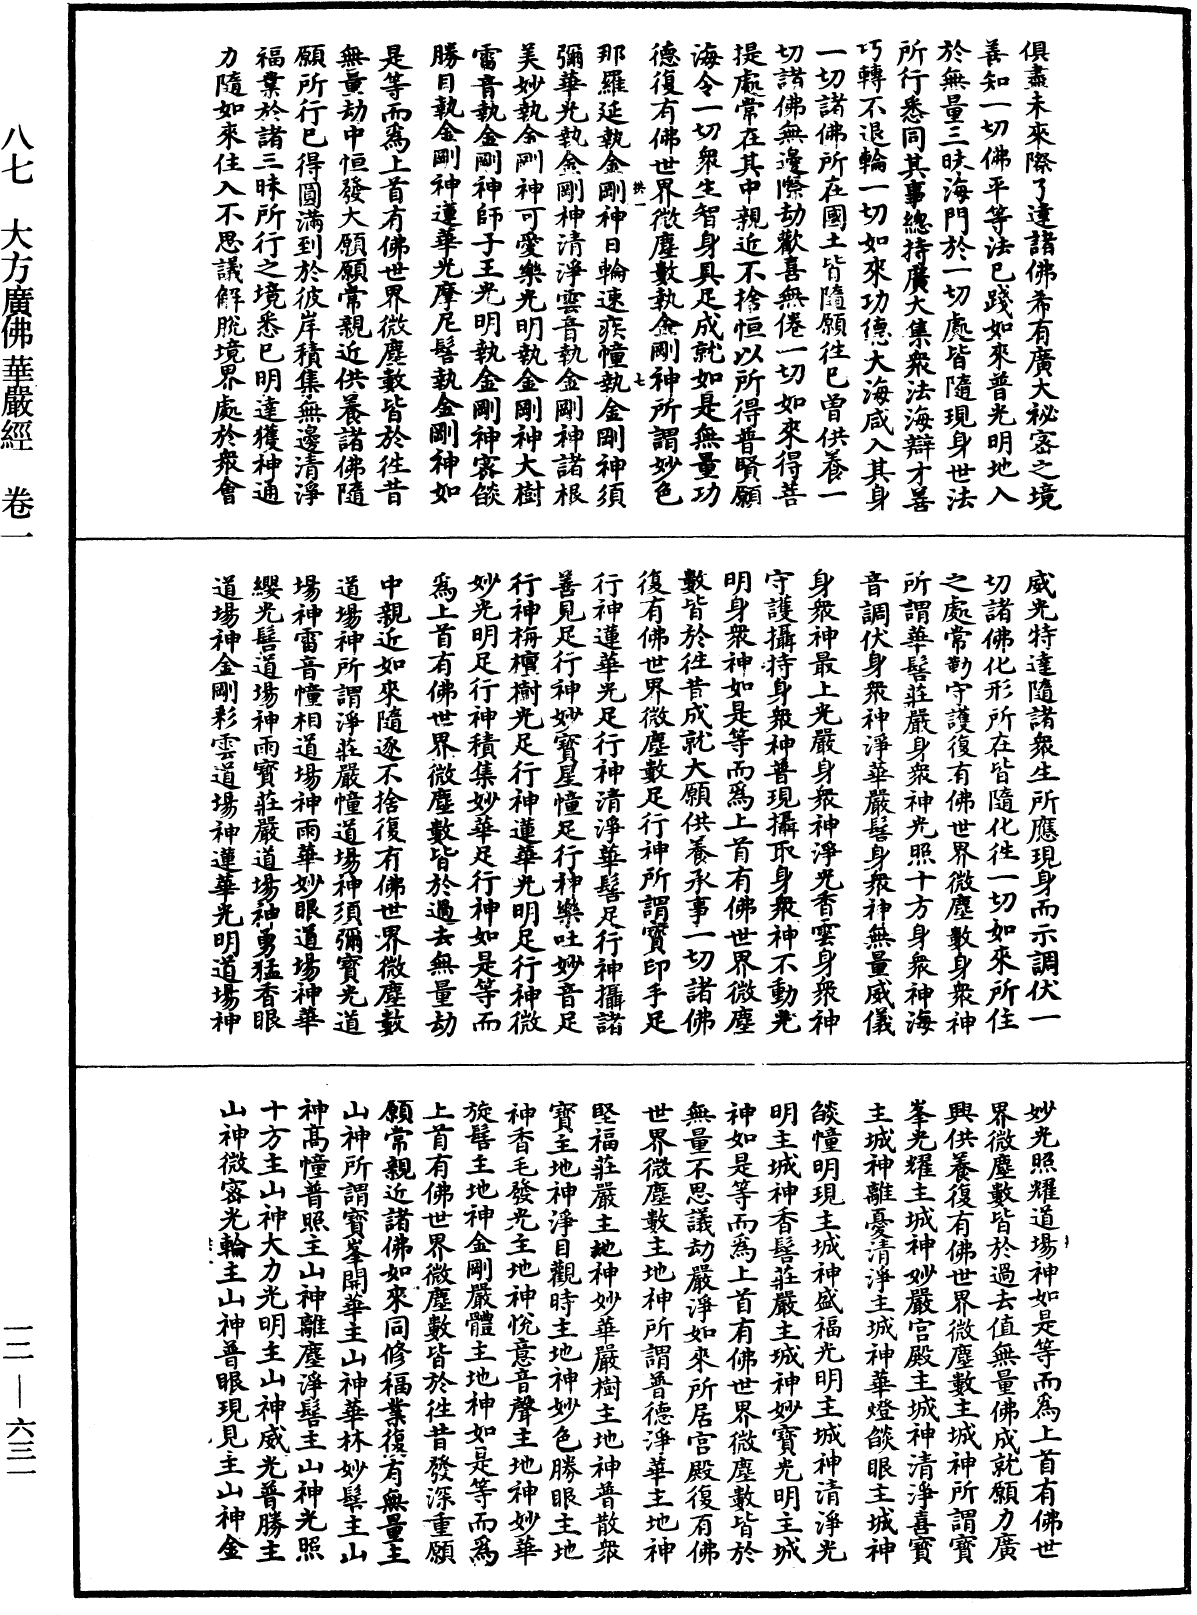 八七　大方廣佛華嚴經　卷一
一二—六三一
俱盡未來際了達諸佛希有廣大祕密之境
善知一切佛平等法已踐如來普光明地入
於無量三昧海門於一切處皆隨現身世法
所行悉同其事總持廣大集衆法海辯才善
巧轉不退輪一切如來功德大海咸入其身
一切諸佛所在國土皆隨願往已曾供養一
切諸佛無邊際劫歡喜無倦一切如來得菩
提處常在其中親近不捨恒以所得普賢願
海令一切衆生智身具足成就如是無量功
德復有佛世界微塵數執金剛神所謂妙色
那羅延執金剛神日輪速疾幢執金剛神須
彌華光執金剛神清淨雲音執金剛神諸根
美妙執金剛神可愛樂光明執金剛神大樹
雷音執金剛神師子王光明執金剛神密燄
勝目執金剛神蓮華光摩尼髻執金剛神如
是等而爲上首有佛世界微塵數皆於往昔
無量劫中恒發大願願常親近供養諸佛隨
願所行已得圓滿到於彼岸積集無邊清淨
福業於諸三昧所行之境悉已明達獲神通
力隨如來住入不思議解脫境界處於衆會
威光特達隨諸衆生所應現身而示調伏一
切諸佛化形所在皆隨化往一切如來所住
之處常勤守護復有佛世界微塵數身衆神
所謂華髻莊嚴身衆神光照十方身衆神海
音調伏身衆神淨華嚴髻身衆神無量威儀
身衆神最上光嚴身衆神淨光香雲身衆神
守護攝持身衆神普現攝取身衆神不動光
明身衆神如是等而爲上首有佛世界微塵
數皆於往昔成就大願供養承事一切諸佛
復有佛世界微塵數足行神所謂寶印手足
行神蓮華光足行神清淨華髻足行神攝諸
善見足行神妙寶星幢足行神樂吐妙音足
行神栴檀樹光足行神蓮華光明足行神微
妙光明足行神積集妙華足行神如是等而
爲上首有佛世界微塵數皆於過去無量劫
中親近如來隨逐不捨復有佛世界微塵數
道場神所謂淨莊嚴幢道場神須彌寶光道
場神雷音幢相道場神雨華妙眼道場神華
纓光髻道場神雨寶莊嚴道場神勇猛香眼
道場神金剛彩雲道場神蓮華光明道場神
妙光照耀道場神如是等而爲上首有佛世
界微塵數皆於過去值無量佛成就願力廣
興供養復有佛世界微塵數主城神所謂寶
峯光耀主城神妙嚴宮殿主城神清淨喜寶
主城神離憂清淨主城神華燈燄眼主城神
燄幢明現主城神盛福光明主城神清淨光
明主城神香髻莊嚴主城神妙寶光明主城
神如是等而爲上首有佛世界微塵數皆於
無量不思議劫嚴淨如來所居宮殿復有佛
世界微塵數主地神所謂普德淨華主地神
堅福莊嚴主地神妙華嚴樹主地神普散衆
寶主地神淨目觀時主地神妙色勝眼主地
神香毛發光主地神悅意音聲主地神妙華
旋髻主地神金剛嚴體主地神如是等而爲
上首有佛世界微塵數皆於往昔發深重願
願常親近諸佛如來同修福業復有無量主
山神所謂寶峯開華主山神華林妙髻主山
神高幢普照主山神離塵淨髻主山神光照
十方主山神大力光明主山神威光普勝主
山神微密光輪主山神普眼現見主山神金